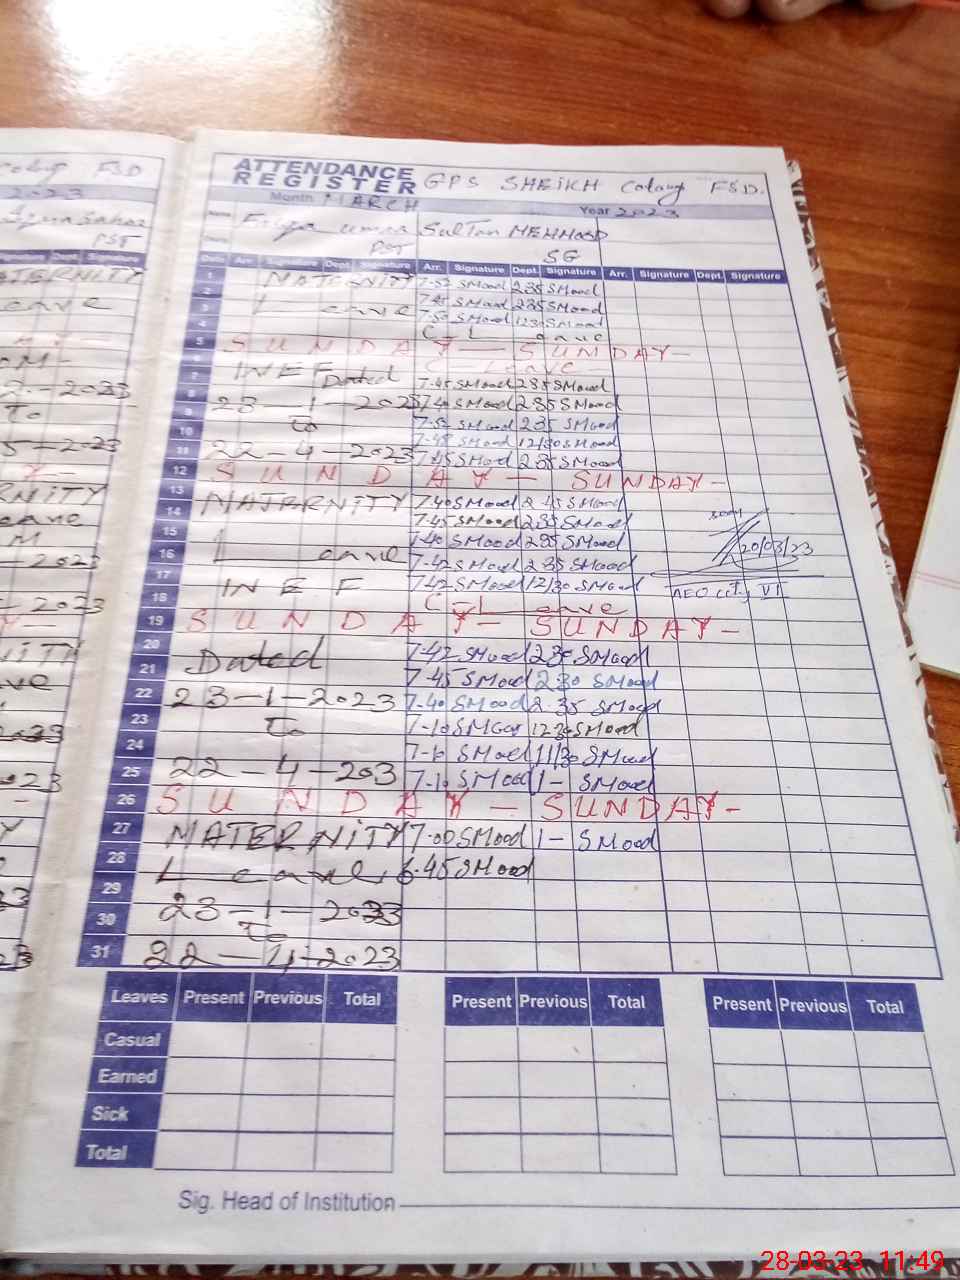 ATTENDANCE
REGISTER GPS SHEIKH Colony FSD.
Month MARCH Year 2023
Name Sultan MEHMOOD
SG
Date Arr. Signature Dept. Signature Arr. Signature Dept. Signature Arr. Signature Dept. Signature
1 MATERNITY 7-52 SMood 235 SMood
2 7-45 SMood 235 SMood
3 Leave 7-50 SMood 1230 SMood
4 C-Leave
5 SUNDAY — SUNDAY —
6 INEF C-Leave -
7 Dated 7-45 SMood 235 SMood
8 23-1-2023 7-40 SMood 235 SMood
9 To 7-52 SMood 235 SMood
10 7-45 SMood 12/30 SMood
11 22-4-2023 7-45 SMood 235 SMood
12 SUNDAY — SUNDAY —
13 MATERNITY 7-40 SMood 2-45 SMood
14 7-45 SMood 235 SMood
15 7-40 SMood 235 SMood
16 Leave 7-42 SMood 235 SMood
20/03/23
17 INEF 7-42 SMood 12/30 SMood
AEO City VI
18 C-Leave
19 SUNDAY — SUNDAY —
20 Dated 7-42 SMood 230 SMood
21 7-45 SMood 230 SMood
22 23-1-2023 7-40 SMood 2-35 SMood
23 To 7-10 SMood 1230 SMood
24 7-10 SMood 11/30 SMood
25 22-4-203 7-10 SMood 1- SMood
26 SUNDAY — SUNDAY —
27 MATERNITY 7-00 SMood 1- SMood
28 Leave 6-45 SMood
29
30 23-1-2023
To
31 22-4-2023
Leaves Present Previous Total Present Previous Total Present Previous Total
Casual
Earned
Sick
Total
Sig. Head of Institution
28-03-23 11:49